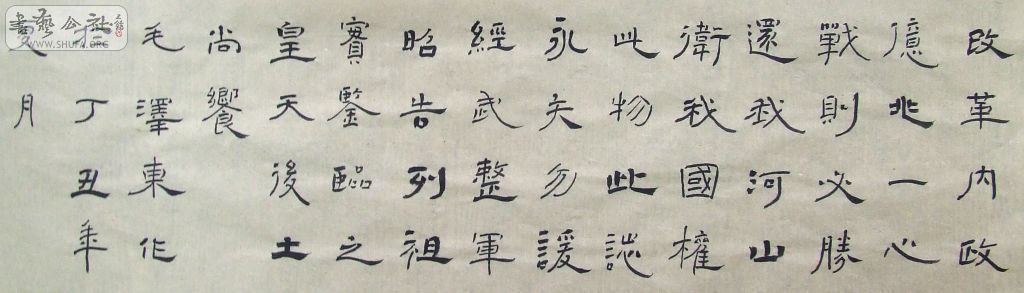 改革内政
億兆一心
戰則必勝
還我河山
衛我國權
此物此誌
永矢勿諼
經武整軍
昭告列祖
實鑒臨之
皇天後土
尚饗
毛澤東作
丁丑年
夏月
書藝公社
WWW.SHUFA.ORG